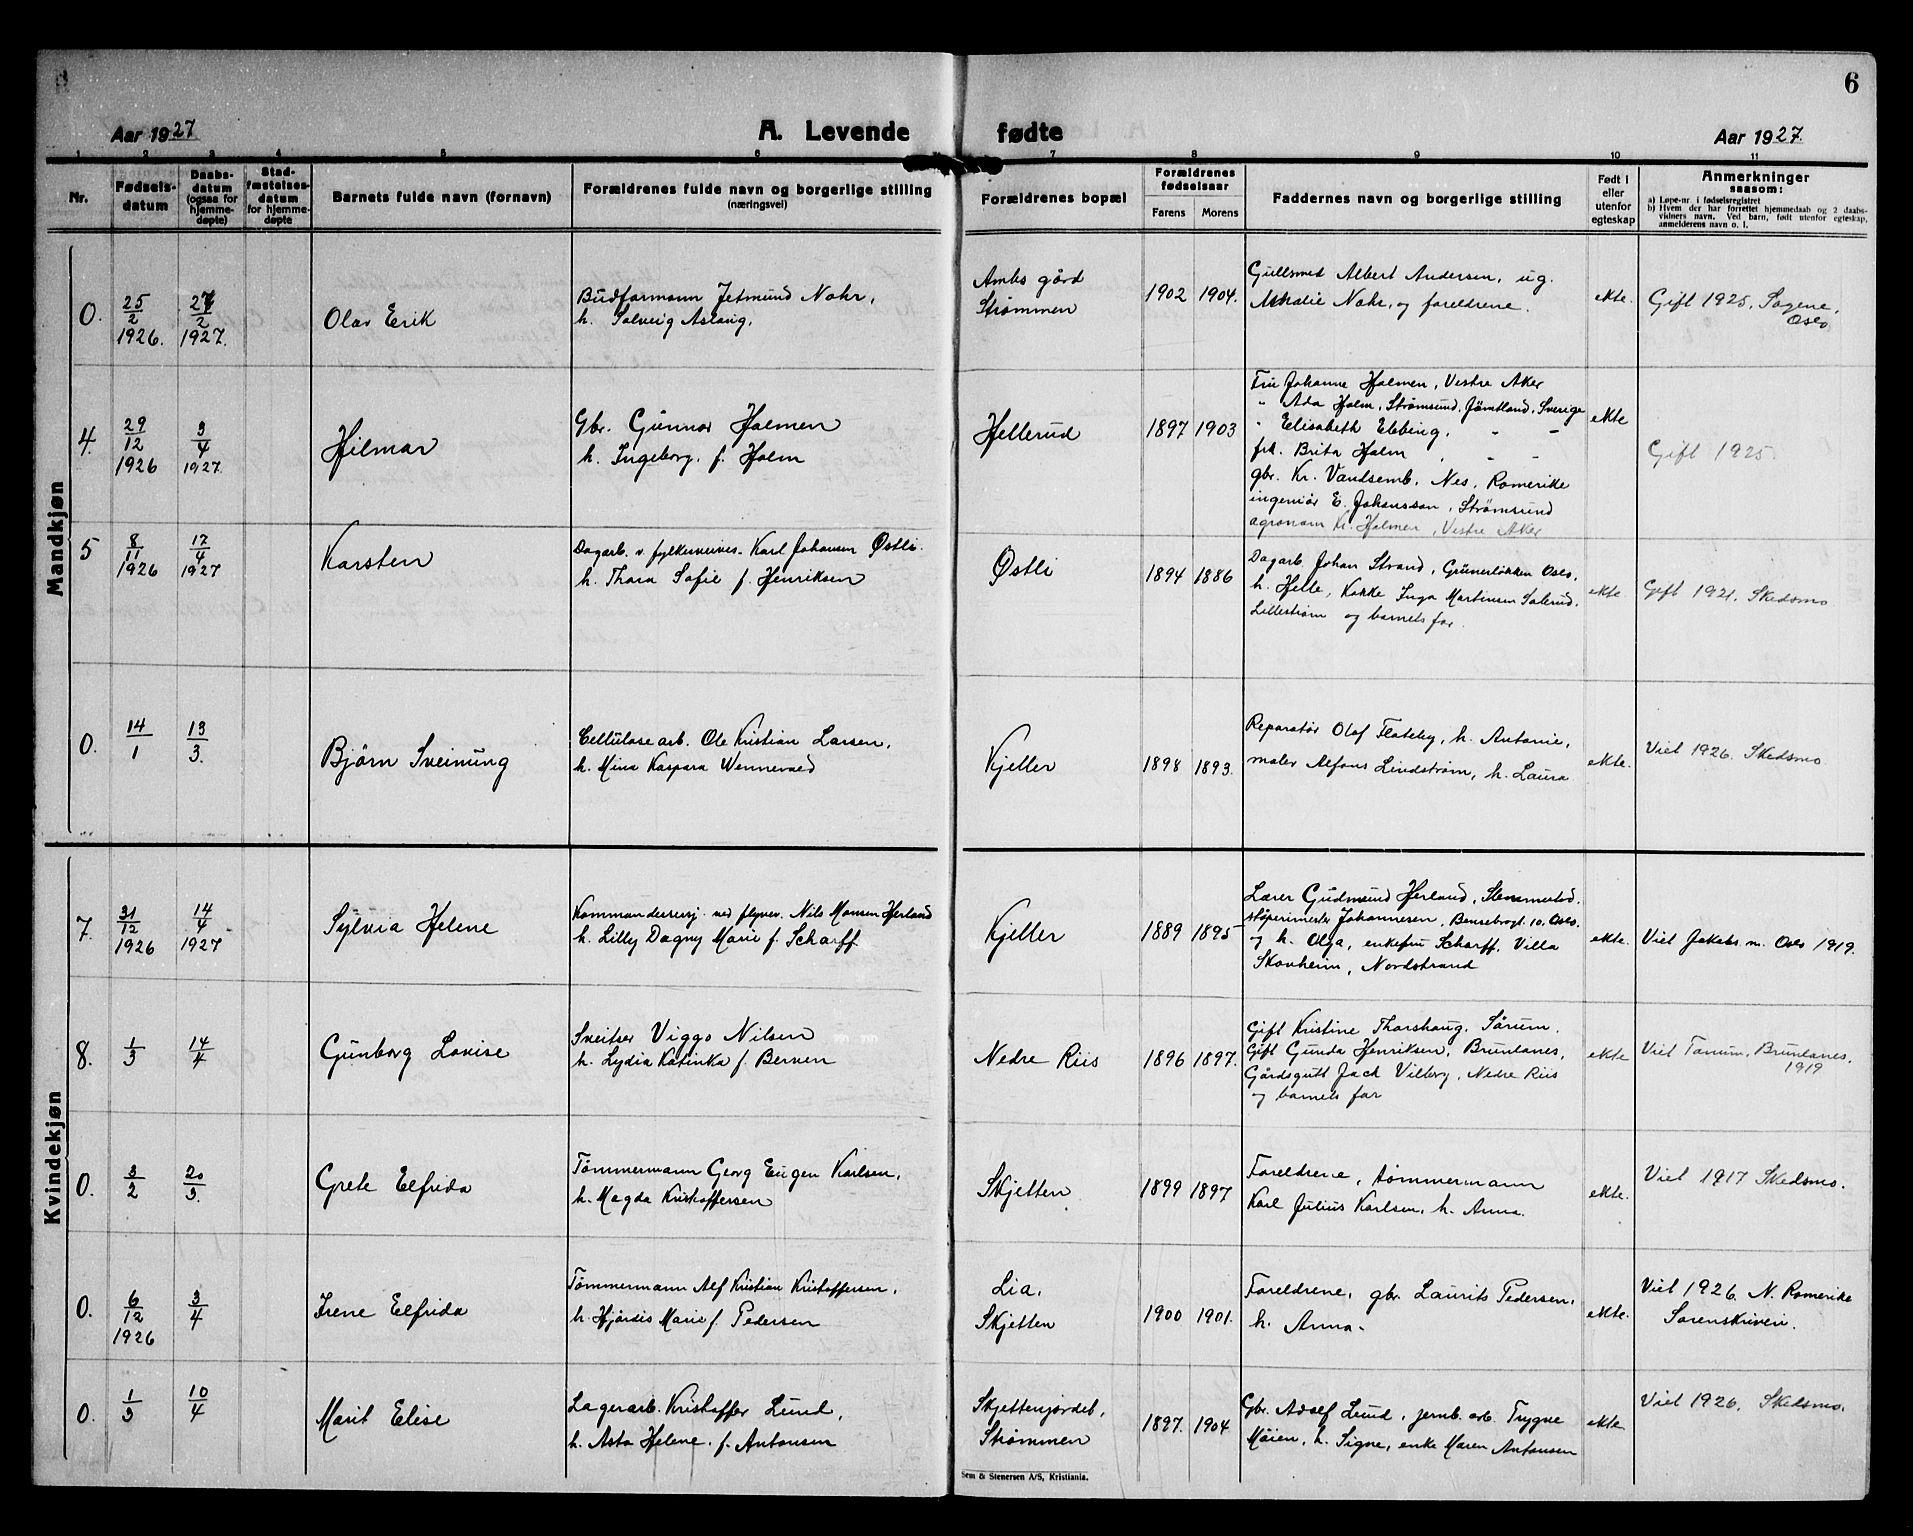 6
Aar 1927
A. Levende fødte
Aar 1927.
1 2 3 4 5 6 7 8 9 10 11
Nr.
Fødsels-
datum
Daabs-
datum
(ogsaa for
hjemme-
døpte)
Stad-
fæstelses-
datum
for hjemme-
døpte
Barnets fulde navn (fornavn)
Forældrenes fulde navn og borgerlige stilling
(næringsvei)
Forældrenes bopæl
Forældrenes
fødselsaar
Farens Morens
Faddernes navn og borgerlige stilling
Født i
eller
utenfor
egteskap
Anmerkninger
saasom:
a) Løpe-nr. i fødselsregistret
b) Hvem der har forrettet hjemmedaab og 2 daabs-
vidners navn. Ved barn, født utenfor egteskap,
anmelderens navn o. l.
Mandkjøn
0.
25/2
1926.
27/2
1927.
Olav Erik
Budformann Jetmund Nohr,
h. Solveig Aslaug.
Ambs gård
Strømmen
1902 1904.
Gullsmed Albert Andersen, ug.
Nohr, og foreldrene.
ekte.
Gift 1925, Sagene,
Oslo
4.
29/12
1926
3/4
1927.
Hilmar
Gbr. Gunnar Holmen
h. Ingeborg, f. Holm
Hellerud
1897 1903
Fru Johanne Holmen, Vestre Aker
" Ada Holm, Strømsund, Jämtland, Sverige
" Elisabeth Ebbing, " "
frk. Brita Holm " " "
gbr. Kr. Vandsemb, Nes, Romerike
ingeniør E. Johansson, Strømsund
agronom Kr. Holmen, Vestre Aker
ekte
Gift 1925
5
8/11
1926
17/4
1927
Karsten
Dagarb. v. fylkesveives. Karl Johansen Østli.
h. Thora Sofie f. Henriksen
Østli
1894 1886
Dagarb. Johan Strand, Grünerløkken Oslo,
h. Helle, Kokke Inga Martinsen Solerud,
Lillestrøm og barnets far.
ekte
Gift 1921. Skedsmo
0.
14/1
13/3.
Bjørn Sveinung
Cellulosearb. Ole Kristian Larsen,
h. Mina Kaspara Wennevold
Kjeller
1898 1893.
Reparatør Olaf Flateby, h. Antonie,
maler Alfons Lindstrøm, h. Laura
ekte.
Viet 1926. Skedsmo
Kvindekjøn
7.
31/12
1926
14/4
1927
Sylvia Helene
Kommandersersj. ved flyvev. Nils Monsen Herland
h. Lilly Dagny Marie f. Scharff
Kjeller
1889 1895
Lærer Gudmund Herland,
støperimester Johannesen, Bensebrogt. 10. Oslo.
og h. Olga, enkefru Scharff, Villa
Skovheim, Nordstrand
ekte.
Viet Jakobs m. Oslo 1919.
8.
1/3
14/4
Gunborg Lovise
Sveitser Viggo Nilsen
h. Lydia Katinka f. Berven
Nedre Riis
1896 1897.
Gift Kristine Thorshaug, Sørum.
Gift Gunda Henriksen, Brunlanes,
Gårdsgutt Jack Vilberg, Nedre Riis
og barnets far
ekte
Viet Tanum, Brunlanes.
1919
0.
3/2
20/3.
Grete Elfrida
Tømmermann Georg Eugen Karlsen,
h. Magda Kristoffersen
Skjetten
1899 1897
Foreldrene, tømmermann
Karl Julius Karlsen, h. Anna.
ekte.
Viet 1917 Skedsmo.
0.
6/12
1926
3/4
Irene Elfrida
Tømmermann Alf Kristian Kristoffersen,
h. Hjørdis Marie f. Pedersen
Lia,
Skjetten
1900 1901.
Foreldrene, gbr. Laurits Pedersen,
h. Anna.
ekte.
Viet 1926. N. Romerike
Sorenskriveri.
0.
1/3
10/4
Marit Elise
Lagerarb. Kristoffer Lund,
h. Asta Helene. f. Antonsen
Skjettenjordet,
Strømmen
1897. 1904
Gbr. Adolf Lund, jernb. arb. Trygve
Moien, h. Signe, enke Maren Antonsen
ekte
Viet 1926. Skedsmo.
Sem & Stenersen A/S, Kristiania.